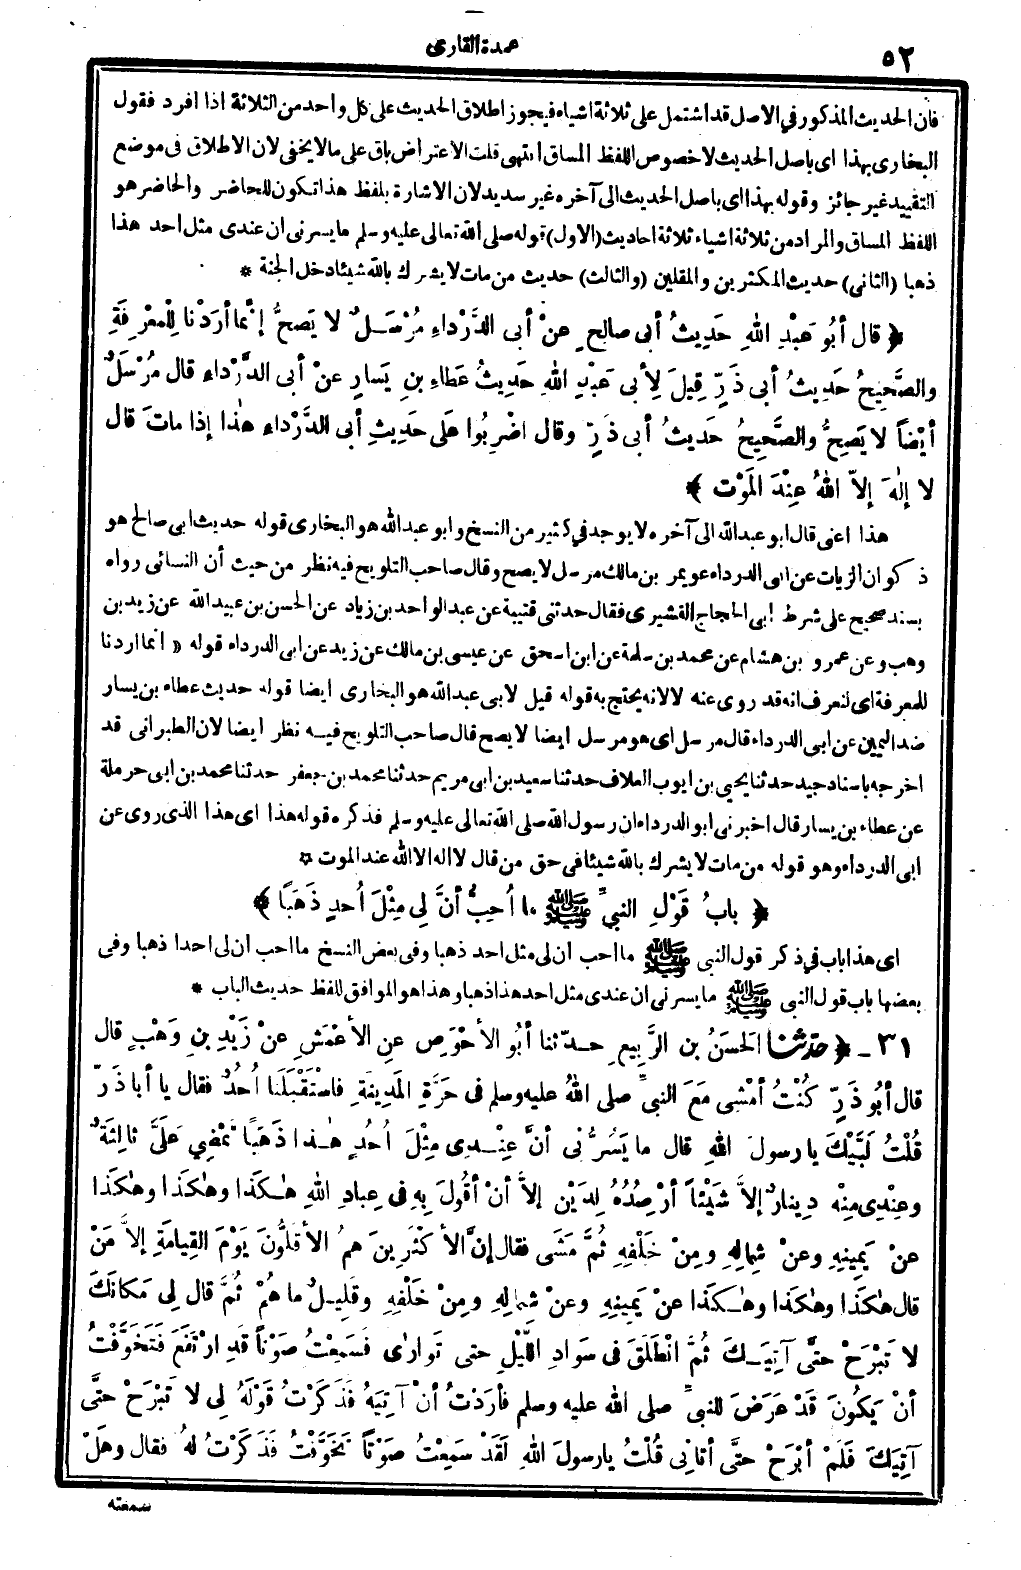 ٥٢
عمدة القارى
فان الحديث المذكور في الاصل قد اشتمل على ثلاثة اشياء فيجوز اطلاق الحديث على كل واحد من الثلاثة اذا افرد فقول
البخارى بهذا اى باصل الحديث لا خصوص اللفظ المساق انتهى قلت الاعتراض باق على مالا يخفى لان الاطلاق فى موضع
التقييد غير جائز وقوله بهذا اى باصل الحديث الى آخره غير سديد لان الاشارة بلفظ هذا تكون للحاضر والحاضر هو
اللفظ المساق والمراد من ثلاثة اشياء ثلاثة احاديث (الاول) قوله صلى الله تعالى عليه وسلم ما يسرنى ان عندى مثل احد هذا
ذهبا (الثانى) حديث المكثرين والمقلين (والثالث) حديث من مات لا يشرك بالله شيئا دخل الجنة *
﴿ قال أَبُو عَبْدِ اللهِ حَدِيثُ أبى صالِحٍ عنْ أبى الدَّرْداءِ مُرْسَــلٌ لا يَصحُّ إنَّما أرَدْنا لِلْمَعْرِفَةِ
والصَّحِيحُ حَدِيثُ أبى ذَرٍّ قِيلَ لِأَبى عَبْدِ اللهِ حَدِيثُ عَطاءِ بنِ يَسارٍ عنْ أبى الدَّرْداءِ قال مُرْسَلٌ
أيْضاً لا يَصِحُّ والصَّحِيحُ حَدِيثُ أبى ذَرٍّ وقال اضْرِبُوا عَلَى حَدِيثِ أبى الدَّرْداءِ هٰذا إذا ماتَ قال
لا إلٰهَ إلاّ اللهُ عِنْدَ المَوْتِ ﴾
هذا اعنى قال ابو عبدالله الى آخره لا يوجد في كثير من النسخ وابو عبدالله هو البخارى قوله حديث ابى صالح هو
ذكوان الزيات عن ابى الدرداء عويمر بن مالك مرسل لا يصح وقال صاحب التلويح فيه نظر من حيث أن النسائى رواه
بسند صحيح على شرط ابى الحجاج القشيرى فقال حدثنى قتيبة عن عبدالواحد بن زياد عن الحسن بن عبيدالله عن زيد بن
وهب وعن عمرو بن هشام عن محمد بن سلمة عن ابن اسحق عن عيسى بن مالك عن زيد عن ابى الدرداء قوله « انما اردنا
للمعرفة اى لنعرف انه قد روى عنه لا لانه يحتج به قوله قيل لابى عبدالله هو البخارى ايضا قوله حديث عطاء بن يسار
ضد اليمين عن ابى الدرداء قال مرسل اى هو مرسل ايضا لا يصح قال صاحب التلويح فيــه نظر ايضا لان الطبرانى قد
اخرجه باسناد جيد حدثنا يحيى بن ايوب العلاف حدثنا سعيد بن ابى مريم حدثنا محمد بن جعفر حدثنا محمد بن ابى حرملة
عن عطاء بن يسار قال اخبرنى ابو الدرداء ان رسول الله صلى الله تعالى عليه وسلم فذكره قوله هذا اى هذا الذى روى عن
ابى الدرداء وهو قوله من مات لا يشرك بالله شيئا فى حق من قال لا اله الا الله عند الموت ☆
﴿ بابُ قَوْلِ النبيِّ ﷺ ما أُحِبُّ أنَّ لى مِثْلَ أُحدٍ ذَهَبًا ﴾
اى هذا باب في ذكر قول النبى ﷺ ما احب ان لى مثل احد ذهبا وفى بعض النسخ ما احب ان لى احدا ذهبا وفى
بعضها باب قول النبى ﷺ ما يسرنى ان عندى مثل احد هذا ذهبا وهذا هو الموافق للفظ حديث الباب *
٣١ - ﴿ حَدَّثَنَا الحَسَنُ بن الرَّبِيعِ حــدّثنا أبُو الأَحْوَصِ عنِ الأعْمَشِ عنْ زَيْدِ بنِ وَهْبٍ قال
قال أبُو ذَرٍّ كُنْتُ أمْشِى مَعَ النبىِّ صلى اللهُ عليه وسلم فى حَرَّةِ المَدِينَةِ فاسْتَقْبَلَنا أُحُدٌ فقال يا أبا ذَرٍّ
قُلْتُ لَبَّيْكَ يا رسولَ اللهِ قال ما يَسُرُّنى أنَّ عِنْــدِى مِثْلَ أُحُدٍ هٰــذا ذَهَبًا تَمْضِى عَلَىَّ ثالِثَةٌ
وعِنْدِى مِنْه دِينارٌ إلاَّ شَيْئاً أرْصُدُهُ لِدَيْنٍ إلاَّ أنْ أقُولَ بِهِ فى عِبادِ اللهِ هٰــكَذا وهٰكَذا وهٰكَذا
عنْ يَمِينِهِ وعنْ شِمالِهِ ومِنْ خَلْفِهِ ثُمَّ مَشَى فقال إنَّ الأكْثَرِينَ هُمُ الأقَلُّونَ يَوْمَ القِيامَةِ إلاَّ مَنْ
قال هٰكَذا وهٰكَذا وهٰــكَذا عنْ يَمِينِهِ وعنْ شِمالِهِ ومِنْ خَلْفِهِ وقَلِيــلٌ ما هُمْ ثُمَّ قال لِى مَكانَكَ
لا تَبْرَحْ حتَّى آتِيَــكَ ثُمَّ انْطَلَقَ فى سَوادِ اللَّيْلِ حتى تَوارٰى فَسَمِعْتُ صَوْتاً قَدِ ارْتَفَعَ فَتَخَوَّفْتُ
أنْ يَكُونَ قَدْ عَرَضَ للنبىِّ صلى الله عليه وسلم فأرَدْتُ أنْ آتِيَهُ فَذَكَرْتُ قَوْلَهُ لِى لا تَبْرَحْ حتَّى
آتِيَكَ فَلَمْ أبْرَحْ حتَّى أتانِى قُلْتُ يا رسولَ اللهِ لَقَدْ سَمِعْتُ صَوْتاً تَخَوَّفْتُ فَذَكَرْتُ لهُ فقال وهَلْ
سمعته